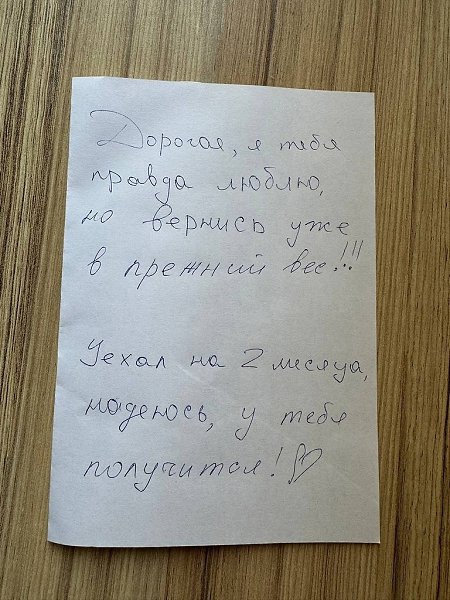 Дорогая, я тебя
правда люблю,
но вернись уже
в прежний вес!!!
Уехал на 2 месяца,
надеюсь, у тебя
получится!